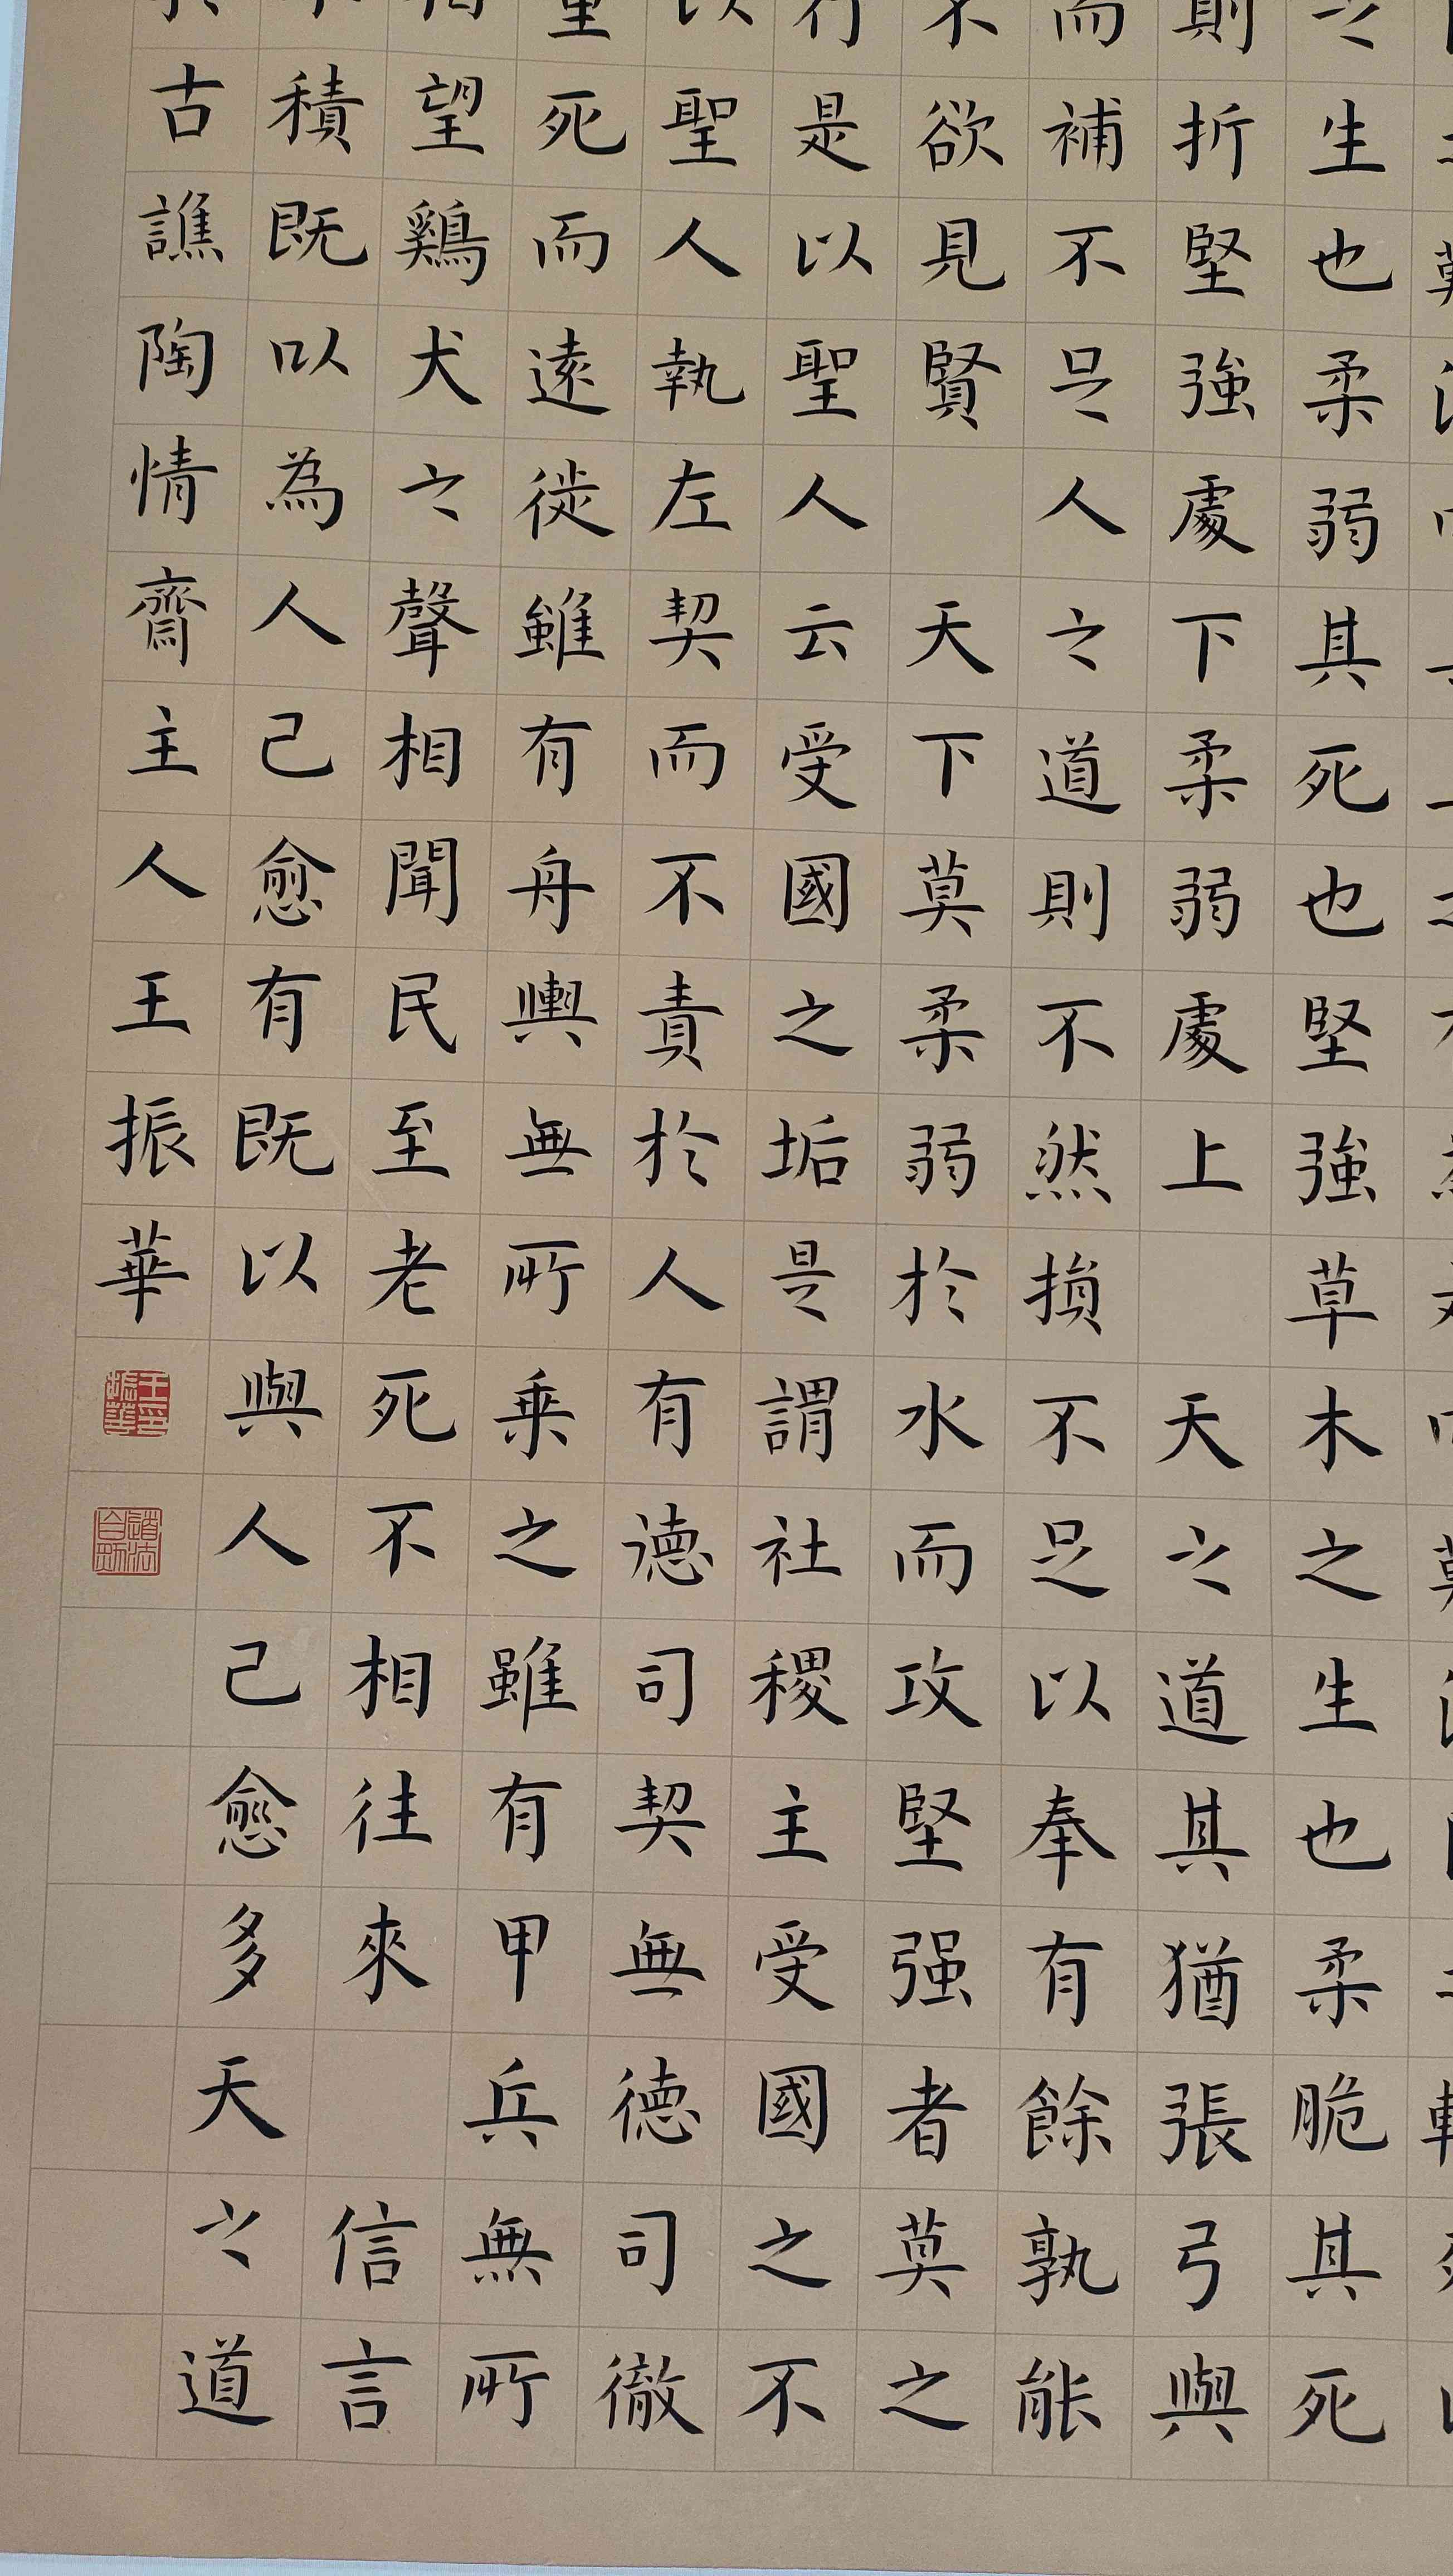 之生也柔弱其死也堅強草木之生也柔脆其死
則折堅強處下柔弱處上 天之道其猶張弓與
而補不足人之道則不然損不足以奉有餘孰能
不欲見賢 天下莫柔弱於水而攻堅强者莫之
行是以聖人云受國之垢是謂社稷主受國之不
以聖人執左契而不責於人有德司契無德司徹
重死而遠徙雖有舟輿無所乗之雖有甲兵無所
相望鷄犬之聲相聞民至老死不相往來 信言
積既以為人己愈有既以與人己愈多天之道
古譙陶情齋主人王振華
王振華印
道法自然